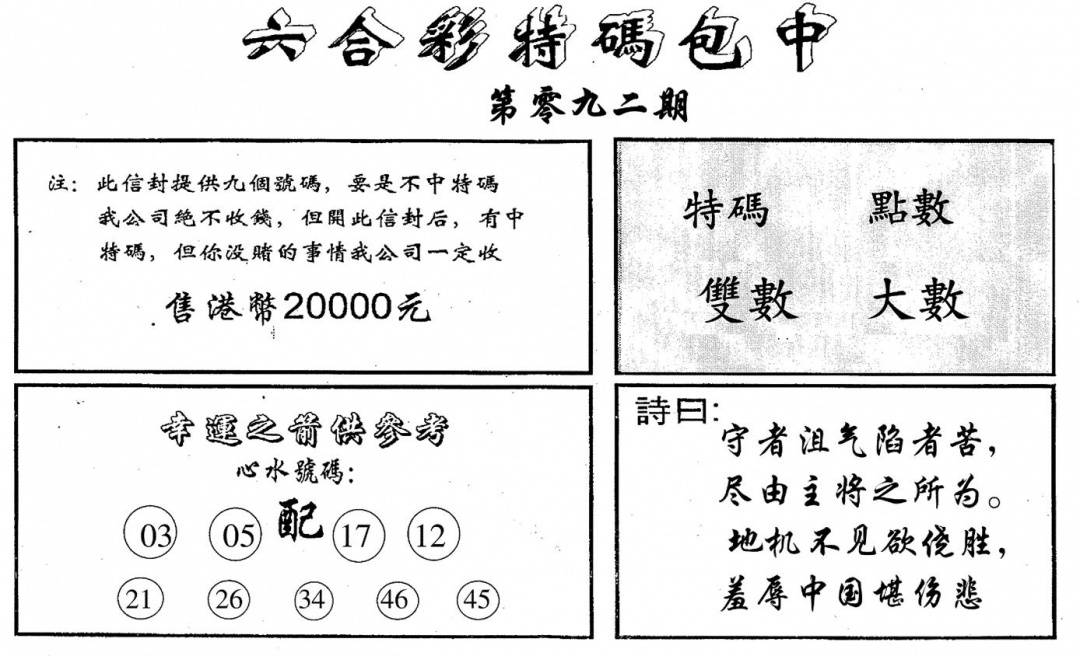 六合彩特碼包中
第零九二期
注：此信封提供九個號碼，要是不中特碼
我公司絕不收錢，但開此信封后，有中
特碼，但你没賭的事情我公司一定收
售港幣20000元
特碼 點數
雙數 大數
幸運之箭供參考
心水號碼：
03 05 配 17 12
21 26 34 46 45
詩曰：
守者沮气陷者苦，
尽由主将之所为。
地机不见欲侥胜，
羞辱中国堪伤悲